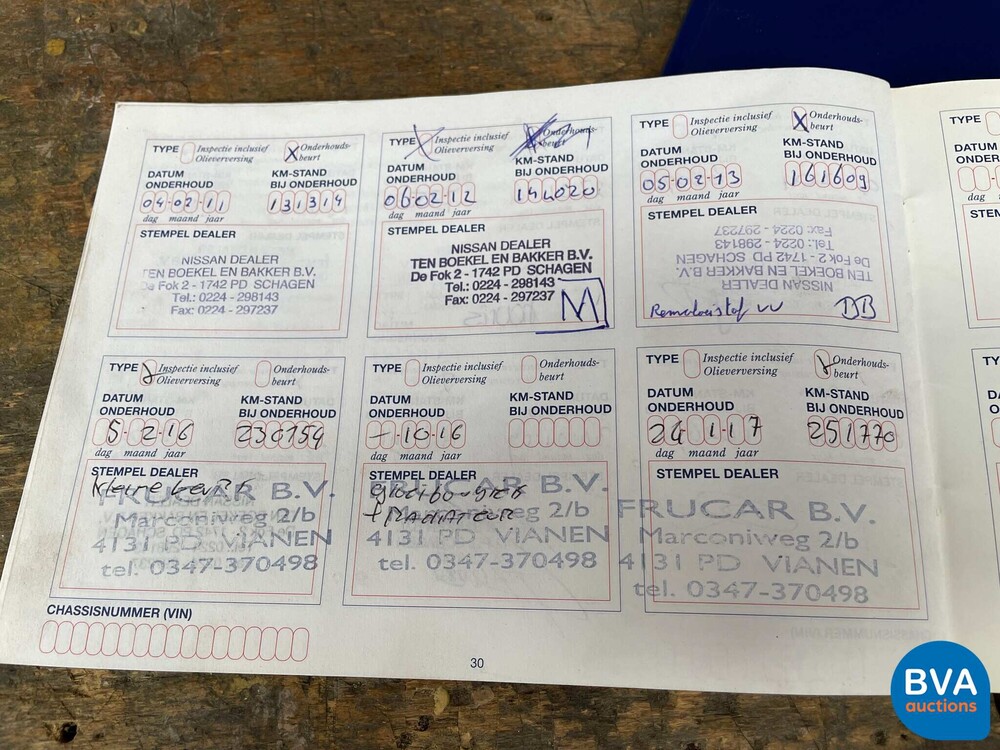 TYPE Inspectie inclusief Olieverversing X Onderhouds-beurt
DATUM ONDERHOUD KM-STAND BIJ ONDERHOUD
04-02-11 131314
dag maand jaar
STEMPEL DEALER
NISSAN DEALER
TEN BOEKEL EN BAKKER B.V.
De Fok 2 - 1742 PD SCHAGEN
Tel.: 0224 - 298143
Fax: 0224 - 297237
TYPE X Inspectie inclusief Olieverversing Onderhouds-beurt
DATUM ONDERHOUD KM-STAND BIJ ONDERHOUD
06-02-12 144020
dag maand jaar
STEMPEL DEALER
NISSAN DEALER
TEN BOEKEL EN BAKKER B.V.
De Fok 2 - 1742 PD SCHAGEN
Tel.: 0224 - 298143
Fax: 0224 - 297237
M
TYPE Inspectie inclusief Olieverversing X Onderhouds-beurt
DATUM ONDERHOUD KM-STAND BIJ ONDERHOUD
05-02-13 161609
dag maand jaar
STEMPEL DEALER
NISSAN DEALER
TEN BOEKEL EN BAKKER B.V.
De Fok 2 - 1742 PD SCHAGEN
Tel.: 0224 - 298143
Fax: 0224 - 297237
Remvloeistof VV BB
TYPE Inspectie inclusief Olieverversing Onderhouds-beurt
DATUM ONDERHOUD KM-STAND BIJ ONDERHOUD
5-2-16 230154
dag maand jaar
STEMPEL DEALER
kleine beurt
FRUCAR B.V.
Marconiweg 2/b
4131 PD VIANEN
tel. 0347-370498
TYPE Inspectie inclusief Olieverversing Onderhouds-beurt
DATUM ONDERHOUD KM-STAND BIJ ONDERHOUD
-10-16
dag maand jaar
STEMPEL DEALER
+ RADIATEUR
FRUCAR B.V.
Marconiweg 2/b
4131 PD VIANEN
tel. 0347-370498
TYPE Inspectie inclusief Olieverversing Onderhouds-beurt
DATUM ONDERHOUD KM-STAND BIJ ONDERHOUD
24 1-17 251770
dag maand jaar
STEMPEL DEALER
FRUCAR B.V.
Marconiweg 2/b
4131 PD VIANEN
tel. 0347-370498
CHASSISNUMMER (VIN)
30
BVA
auctions